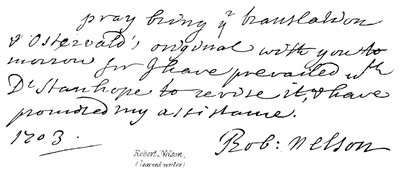 pray bring yr translation
& Ostervald's original with you to
morrow for I have prevailed wth
Dr Stanhope to revise it, & have
promised my assistance.
1703.
Rob: Nelson
Robert Nelson,
(learned writer)